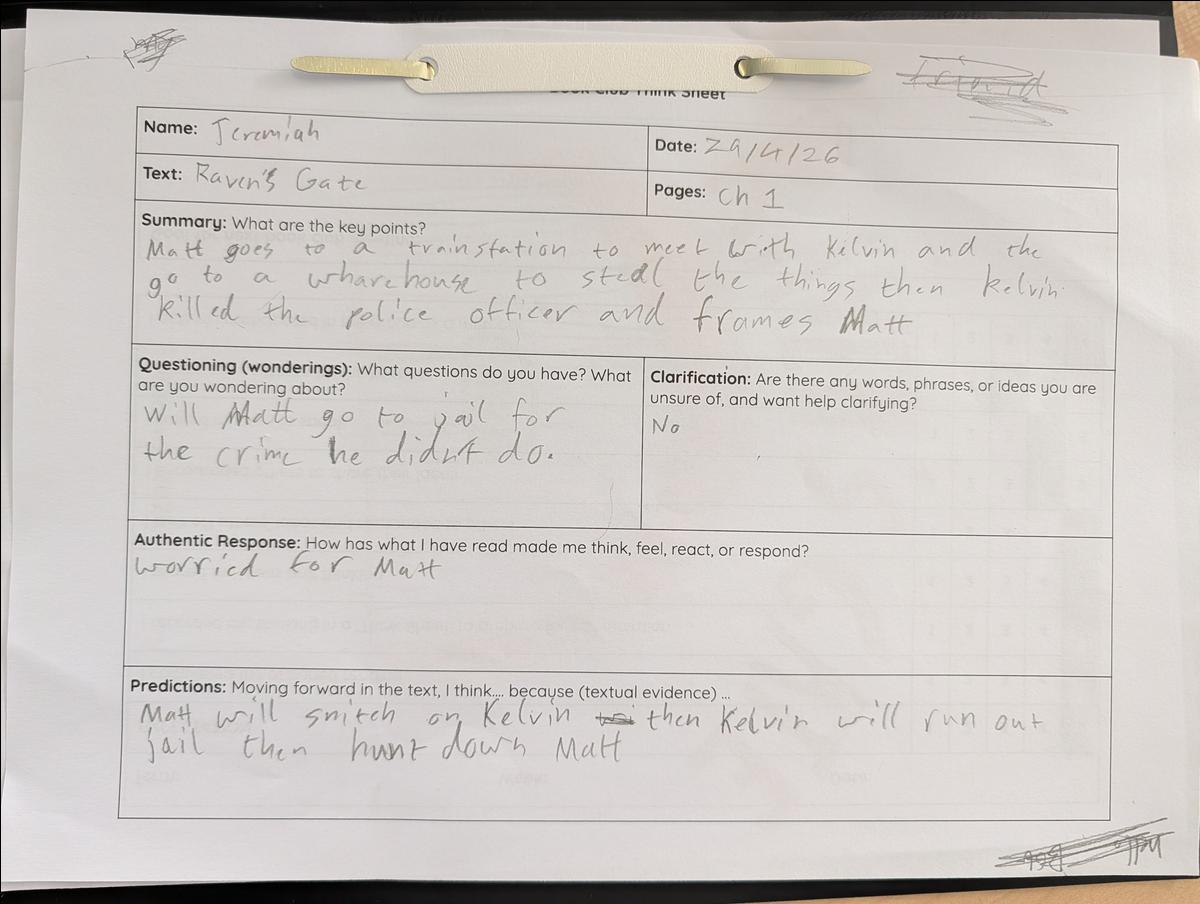 Book Club Think Sheet
Name: Jeremiah
Date: 29/4/26
Text: Raven's Gate
Pages: Ch 1
Summary: What are the key points?
Matt goes to a trainstation to meet with Kelvin and the
go to a wharehouse to steal the things then kelvin
killed the police officer and frames Matt
Questioning (wonderings): What questions do you have? What
are you wondering about?
Will Matt go to jail for
the crime he didn't do.
Clarification: Are there any words, phrases, or ideas you are
unsure of, and want help clarifying?
No
Authentic Response: How has what I have read made me think, feel, react, or respond?
worried for Matt
Predictions: Moving forward in the text, I think.... because (textual evidence) ...
Matt will snitch on Kelvin then Kelvin will run out
jail then hunt down Matt